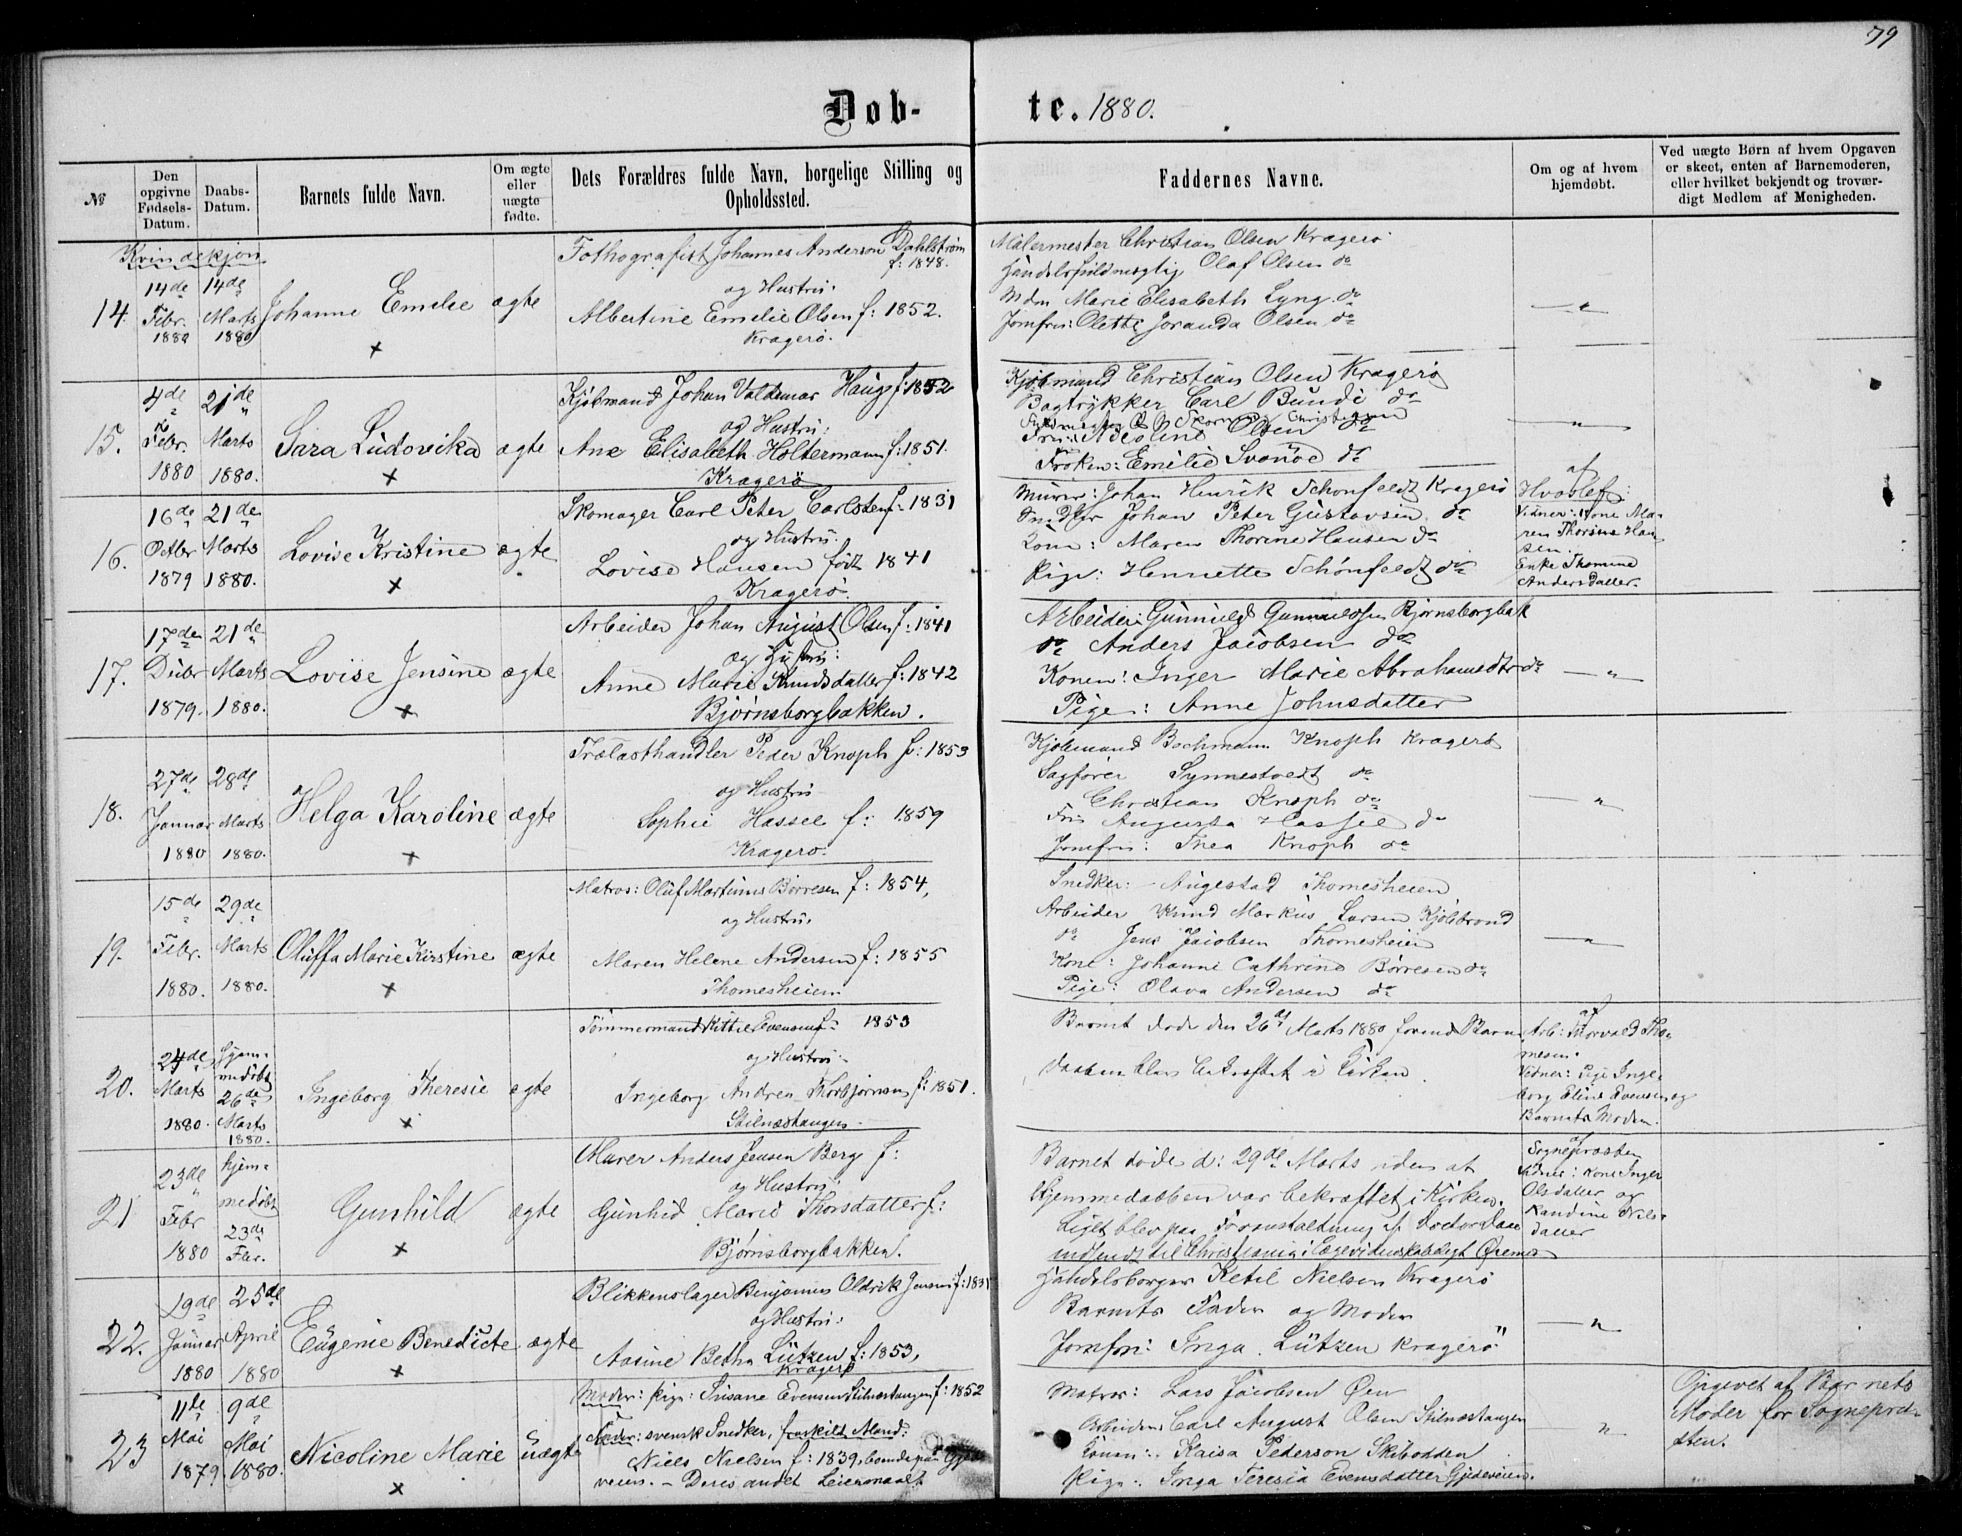 79
Døb-
te. 1880.
№
Den opgivne Fødsels-Datum.
Daabs-Datum.
Barnets fulde Navn.
Om ægte eller uægte fødte.
Dets Forældres fulde Navn, borgelige Stilling og Opholdssted.
Faddernes Navne.
Om og af hvem hjemdøbt.
Ved uægte Børn af hvem Opgaven er skeet, enten af Barnemoderen, eller hvilket bekjendt og troværdigt Medlem af Menigheden.
Kvindekjøn
14.
14de Febr. 1880
14de Marts 1880
Johanne Emelie
ægte
Fothografist Johannes Anderson Dahlstrøm f: 1848.
og Hustru:
Albertine Emelie Olsen f: 1852.
Kragerø.
Målermester Christian Olsen Kragerø
Handelsfuldmægtig Olaf Olsen do
Mdm Marie Elisabeth Lyng do
Jomfru: Olette Joranda Olsen do
— " —
15.
4de Febr. 1880
21de Marts 1880.
Sara Ludovika
ægte
Kjøbmand Johan Valdemar Hauge f: 1852
og Hustru:
Ane Elisabeth Holtermann f: 1851.
Kragerø
Kjøbmand Christian Olsen Kragerø
Bogtrykker Carl Bundi do
Fru: Nicoline Olsen do
Frøken: Emilie Svanøe do
— " —
16.
16de Octbr 1879
21de Marts 1880.
Lovise Kristine
ægte
Skomager Carl Peter Carlsten f: 1831
og Hustru:
Lovise Hansen født 1841
Kragerø.
Murer: Johan Henrik Schønfeldt Kragerø
Johan Peter Gustavsen do
Kone: Maren Thorine Hansen do
Pige: Henriette Schønfeldt do
af
Vidner: Kone Maren Thorine Hansen.
Enke Thomine
Andersdatter.
17.
17den Decbr 1879.
21de Marts 1880.
Lovise Jensine
ægte
Arbeider Johan August Olsen f: 1841
og Hustru:
Anne Marie Knudsdatter f: 1842
Bjørnsborgbakken.
Arbeider: Gunnuld Gunnuldsen Bjørnsborgbak
do Anders Jacobsen do
Konen: Inger Marie Abrahamsdtr do
Pige: Anne Johnsdatter
— " —
18.
27de Januar 1880
28de Marts 1880.
Helga Karoline
ægte
Trælasthandler Peder Knoph f: 1853
og Hustru
Sophie Hassel f: 1859
Kragerø.
Kjøbmand Bochmann Knoph Kragerø
Sagfører Synnestvedt do
Christian Knoph do
Fru Augusta Hassel do
Jomfru: Thea Knoph do
— " —
19.
15de Febr. 1880.
29de Marts 1880.
Oluffa Marie Kirstine
ægte
Matros: Oluf Martinius Børresen f: 1854,
og Hustru.
Maren Helene Andersen f: 1855
Thomesheien
Snedker: Augestad Thomesheien
Arbeider Knud Markus Larsen Kjølebrønd
do Jens Jacobsen Thomesheien
Kone: Johanne Cathrine Børresen do
Pige: Olava Andersen do
— " —
20.
24de Marts 1880.
Hjemmedøbt 26de Marts 1880.
Ingeborg Theresie
ægte
Tømmermand Kittil Evensen f: 1853
og Hustru:
Ingeborg Andrea Thorbjørnsen f: 1851.
Stilnæstangen.
Barnet døde den 26de Marts 1880 forend Barne
daaben blev bekræftet i Kirken
af
Arb: Thorvald Thomesen.
Vidner: Pige Ingeborg Eline Evensen og
Barnets Moder.
21
23de Febr 1880
hjemmedøbt 23de Fbr.
Gunhild
ægte
Murer Anders Jensen Berg f:
og Hustru:
Gunhild Marie Thorsdatter f:
Bjørnsborgbakken.
Barnet døde d: 29de Marts uden at
Hjemmedaaben var bekræftet i Kirken.
Liget blev paa Foranstaltning af Doctor
indsendt til Christiania i Lægevidenskabeligt Øiemed
af
Sognepræsten
Vidner: Kone Inger
Olsdatter og
Randine Nilsdatter
22.
19de Januar 1880
25de April 1880
Eugenie Benedicte
ægte
Blikkenslager Benjamin Oldrik Jensen f: 1831
og Hustru:
Aasine Betha Lützen f: 1853,
Kragerø
Handelsborger Ketil Nielsen Kragerø
Barnets Fader og Moder
Jomfru: Inga Lützen Kragerø
— " —
23
11te Mai 1879
9de Mai 1880.
Nicoline Marie
uægte
Moder: Pige: Susane Evensen Stilnæstangen f: 1852
Fader: svensk Snedker, fraskilt Mand:
Niels Nielsen f: 1839, boende paa Gjedeveien. — Deres andet Leiermaal.
Matros: Lars Jacobsen Øen
Arbeider Carl August Olsen Stilnæstangen
Konen: Kaisa Pederson Skibodden
Pige: Inga Teresia Evensdatter Gjedeveien.
"
Opgivet af Barnets
Moder for Sognepræsten.